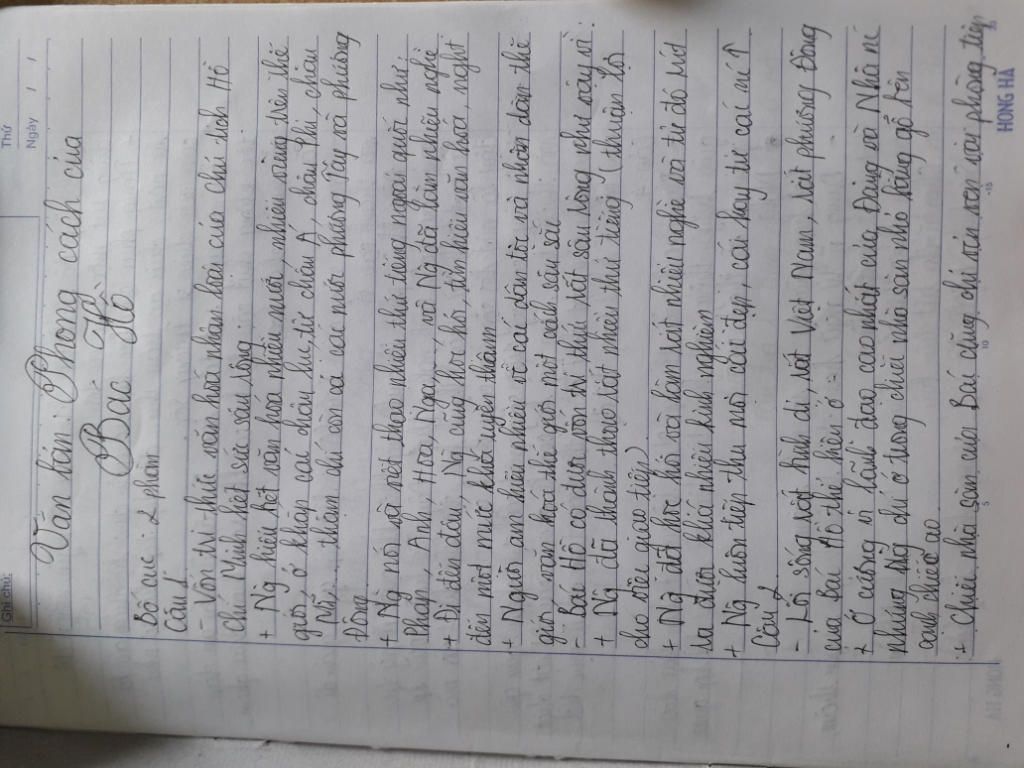 Thứ
Ngày / /
Ghi chú:
Văn bản: Phong cách của
Bác Hồ
Bố cục: 2 phần
Câu 1
- Vốn tri thức văn hoá nhân loại của chủ tịch Hồ
Chí Minh hết sức sâu rộng
+ Ng hiểu hết văn hóa nhiều nước, nhiều vùng trên thế
giới, ở khắp các châu lục, từ châu Á, châu Phi, châu
Mỹ, thậm chí còn cả các nước phương Tây và phương
Đông
+ Ng nói và viết thạo nhiều thứ tiếng ngoại quốc như:
Pháp, Anh, Hoa, Nga, và Ng đã làm nhiều nghề
+ Đi đến đâu, Ng cũng học hỏi, tìm hiểu văn hoá, nghệ
đến một mức khá uyên thâm
+ Người am hiểu nhiều về các dân tộc và nhân dân thế
giới, văn hoá thế giới một cách sâu sắc
- Bác Hồ có được vốn tri thức rất sâu rộng như vậy vì:
+ Ng đã thành thạo rất nhiều thứ tiếng (thuận lợi
cho việc giao tiếp)
+ Ng đã học hỏi và làm rất nhiều nghề và từ đó rút
ra được khá nhiều kinh nghiệm
+ Ng luôn tiếp thu mọi cái đẹp, cái hay từ các nc ↑
Câu 2
- Lối sống rất bình dị, rất Việt Nam, rất phương Đông
của Bác Hồ thể hiện ở:
+ Ở cương vị lãnh đạo cao nhất của Đảng và Nhà nc
nhưng Ng chỉ ở trong chiếc nhà sàn nhỏ bằng gỗ bên
cạnh chiếc ao
+ Chiếc nhà sàn của Bác cũng chỉ vẻn vẹn vài phòng tiếp
5 10 15
HONG HA